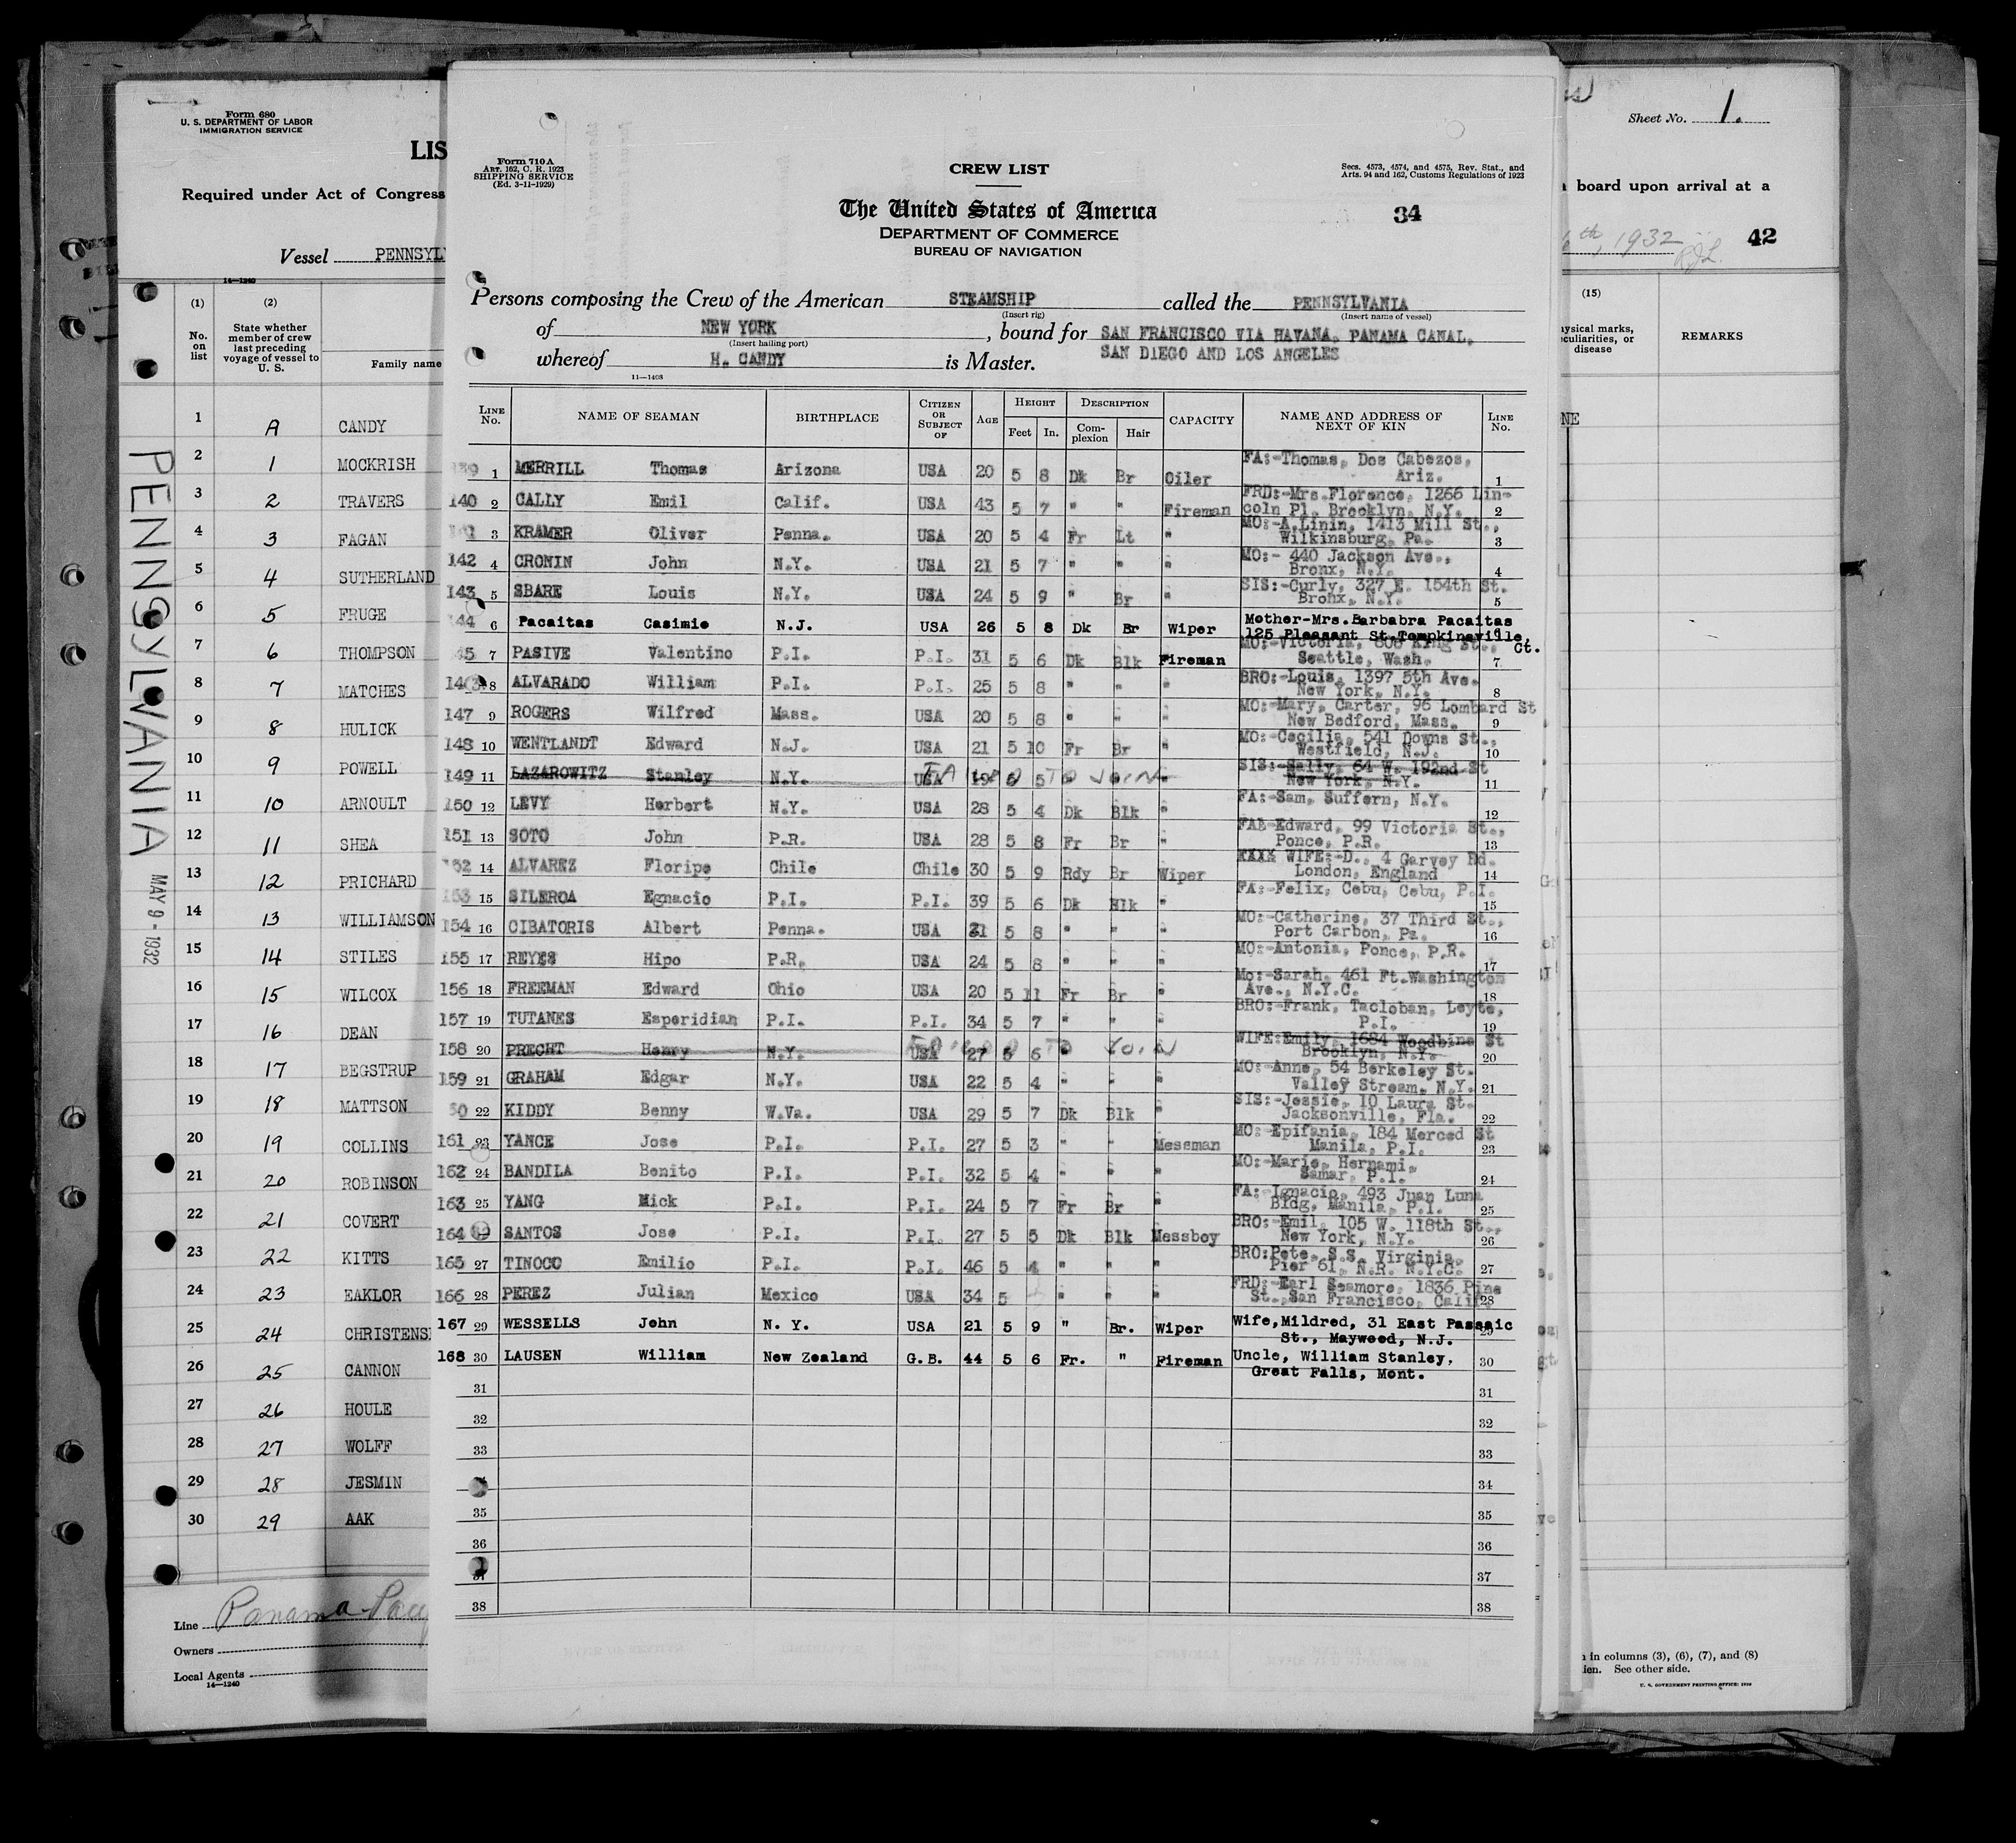 Form 680
U. S. DEPARTMENT OF LABOR
IMMIGRATION SERVICE
LIS
Required under Act of Congress
Vessel PENNSYL
14—1240
(1) (2)
No. on list
State whether member of crew last preceding voyage of vessel to U. S.
Family name
1 A CANDY
2 1 MOCKRISH
3 2 TRAVERS
4 3 FAGAN
5 4 SUTHERLAND
6 5 FRUGE
7 6 THOMPSON
8 7 MATCHES
9 8 HULICK
10 9 POWELL
11 10 ARNOULT
12 11 SHEA
13 12 PRICHARD
14 13 WILLIAMSON
15 14 STILES
16 15 WILCOX
17 16 DEAN
18 17 BEGSTRUP
19 18 MATTSON
20 19 COLLINS
21 20 ROBINSON
22 21 COVERT
23 22 KITTS
24 23 EAKLOR
25 24 CHRISTENS
26 25 CANNON
27 26 HOULE
28 27 WOLFF
29 28 JESMIN
30 29 AAK
Line Panama Pacif
Owners
Local Agents
14—1240
PENNSYLVANIA
MAY 9 - 1932
Form 710 A
ART. 162, C. R. 1923
SHIPPING SERVICE
(Ed. 3-11-1929)
CREW LIST
Secs. 4573, 4574, and 4575, Rev. Stat., and
Arts. 94 and 162, Customs Regulations of 1923
The United States of America
34
DEPARTMENT OF COMMERCE
BUREAU OF NAVIGATION
Persons composing the Crew of the American STEAMSHIP called the PENNSYLVANIA
(Insert rig) (Insert name of vessel)
of NEW YORK, bound for SAN FRANCISCO VIA HAVANA, PANAMA CANAL,
(Insert hailing port)
whereof H. CANDY is Master. SAN DIEGO AND LOS ANGELES
11—1403
LINE No. NAME OF SEAMAN BIRTHPLACE CITIZEN OR SUBJECT OF AGE HEIGHT Feet In. DESCRIPTION Complexion Hair CAPACITY NAME AND ADDRESS OF NEXT OF KIN LINE No.
139 1 MERRILL Thomas Arizona USA 20 5 8 Dk Br Oiler FA:-Thomas, Dos Cabezos, Ariz. 1
140 2 CALLY Emil Calif. USA 43 5 7 " " Fireman FRD:-Mrs.Florence, 1266 Lincoln Pl. Brooklyn, N.Y. 2
141 3 KRAMER Oliver Penna. USA 20 5 4 Fr Lt " MO:-A.Linin, 1413 Mill St., Wilkinsburg, Pa. 3
142 4 CRONIN John N.Y. USA 21 5 7 " " " MO:- 440 Jackson Ave., Bronx, N.Y. 4
143 5 SBARE Louis N.Y. USA 24 5 9 " Br " SIS:-Curly, 327 E. 154th St. Bronx, N.Y. 5
144 6 Pacaitas Casimie N.J. USA 26 5 8 Dk Br Wiper Mother-Mrs.Barbabra Pacaitas 125 Pleasant St.Tompkinsville, Ct.
145 7 PASIVE Valentino P.I. P.I. 31 5 6 Dk Blk Fireman MO:-Victoria, 606 King St., Seattle, Wash. 7
146 8 ALVARADO William P.I. P.I. 25 5 8 " " " BRO:-Louis, 1397 5th Ave. New York, N.Y. 8
147 9 ROGERS Wilfred Mass. USA 20 5 8 " " " MO:-Mary, Carter, 96 Lombard St New Bedford, Mass. 9
148 10 WENTLANDT Edward N.J. USA 21 5 10 Fr Br " MO:-Cecilia, 541 Downs St., Westfield, N.J. 10
149 11 LAZAROWITZ Stanley N.Y. USA 19 5 5 " " " SIS:-Sally, 64 W. 192nd St New York, N.Y. 11
FAILED TO JOIN
150 12 LEVY Herbert N.Y. USA 28 5 4 Dk Blk " FA:-Sam, Suffern, N.Y. 12
151 13 SOTO John P.R. USA 28 5 8 Fr Br " FA:-Edward, 99 Victoria St., Ponce, P.R. 13
152 14 ALVAREZ Floripe Chile Chile 30 5 9 Rdy Br Wiper XXXX WIFE:-D., 4 Garvey Rd. London, England 14
153 15 SILEROA Egnacio P.I. P.I. 39 5 6 Dk Blk " FA:-Felix, Cebu, Cebu, P.I. 15
154 16 CIBATORIS Albert Penna. USA 21 5 8 " " " MO:-Catherine, 37 Third St., Port Carbon, Pa. 16
155 17 REYES Hipo P.R. USA 24 5 8 " " " MO:-Antonia, Ponce, P.R. 17
156 18 FREEMAN Edward Ohio USA 20 5 11 Fr Br " Mo:-Sarah, 461 Ft.Washington Ave., N.Y.C. 18
157 19 TUTANES Esperidian P.I. P.I. 34 5 7 " " " BRO:-Frank, Tacloban, Leyte, P.I. 19
158 20 PRECHT Henry N.Y. USA 27 5 6 " WIFE:Emily, 1684 Woodbine St Brooklyn, N.Y. 20
FAILED TO JOIN
159 21 GRAHAM Edgar N.Y. USA 22 5 4 " " " MO:-Anne, 54 Berkeley St. Valley Stream, N.Y. 21
60 22 KIDDY Benny W.Va. USA 29 5 7 Dk Blk " SIS:-Jessie, 10 Laura St. Jacksonville, Fla. 22
161 23 YANCE Jose P.I. P.I. 27 5 3 " " Messman MO:-Epifania, 184 Merced St Manila, P.I. 23
162 24 BANDILA Benito P.I. P.I. 32 5 4 " " " MO:-Marie, Hernami, Samar, P.I. 24
163 25 YANG Mick P.I. P.I. 24 5 7 Fr Br " FA:-Ignacio, 493 Juan Luna Bldg, Manila, P.I. 25
164 SANTOS Jose P.I. P.I. 27 5 5 Dk Blk Messboy BRO:-Emil, 105 W. 118th St., New York, N.Y. 26
165 27 TINOCO Emilio P.I. P.I. 46 5 4 " " " BRO:Pete, S.S. Virginia, Pier 61, N.R. N.Y.C. 27
166 28 PEREZ Julian Mexico USA 34 5 " " " FRD:-Earl Seamore, 1836 Pine St.,San Francisco, Calif. 28
167 29 WESSELLS John N. Y. USA 21 5 9 " Br. Wiper Wife,Mildred, 31 East Passaic St., Maywood, N.J. 29
168 30 LAUSEN William New Zealand G.B. 44 5 6 Fr. " Fireman Uncle, William Stanley, Great Falls, Mont. 30
31 31
32 32
33 33
34
35 35
36 36
37 37
38 38
Sheet No. 1.
board upon arrival at a
6th, 1932
42
(15)
ysical marks, culiarities, or disease
REMARKS
NE
in columns (3), (6), (7), and (8)
ien. See other side.
U. S. GOVERNMENT PRINTING OFFICE: 1929